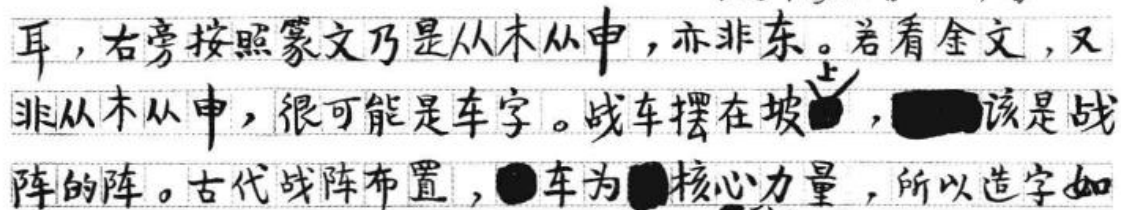 耳，右旁按照篆文乃是从木从申，亦非东。若看金文，又
非从木从申，很可能是车字。战车摆在坡上，该是战
阵的阵。古代战阵布置，车为核心力量，所以造字如